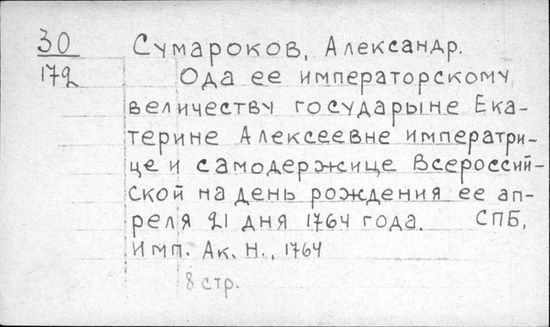 30 Сумароков, Александр.
172 Ода ее императорскому
величеству государыне Ека-
терине Алексеевне императри-
це и самодержице Всероссий-
ской на день рождения ее ап-
реля 21 дня 1764 года. СПБ,
Имп. Ак. Н., 1764
8 стр.